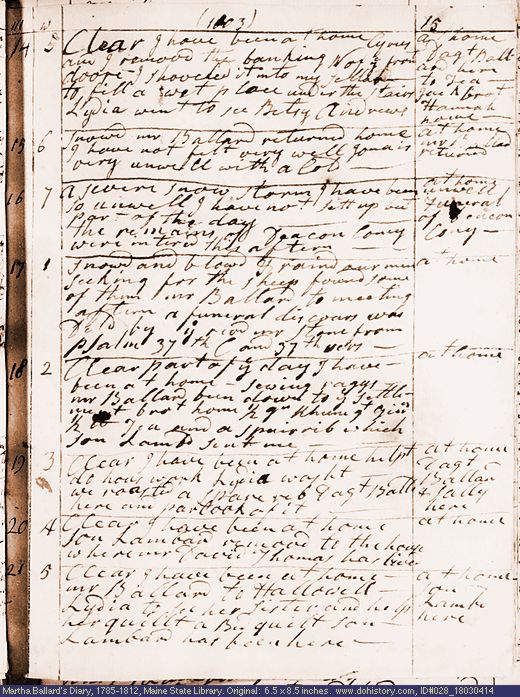 (1803) 15
14 5 Clear I have been at home Cyrus at home
and I removed the banking North from Dagt Ball
doore I shoveled it into my seller and here
to fill a wet place under the stairs to Tea
Lydia went to see Betsy Andrews Hannah
home
15 6 snowd mr Ballard returnd home at home
I have not felt very well Jonas is mr Ballard
very unwell with a Cold returnd
16 7 a severe snow storm I have been at home
so unwell I have not sett up but unwell
part of the day Funeral
the remains of Deacon Cony of Deacon
were intered this aftern Cony
17 1 snowd and blowd & raind our men at home
seeking for the sheep found some
of them mr Ballard to meeting
aftern a funeral discours was
by revd mr Stone from
Psalm 37th and 37th vers
18 2 Clear part of ye day I have at home
been at home sewing raggs
mr Ballard been down to ye settle
ment brot home
Tea and a spairrib which
son Lambd sent me
19 3 Clear I have been at home helpt at home
do hous work Lydia washt Dagt
we roasted a spare reb Dagt Balld Ballard
here and partook of it & Sally
here
20 4 Clear I have been at home at home
son Lambard removd to the house
where mr David Thomas has livd
21 5 Clear I have been at home at home
mr Ballard to Hallowell son
Lydia to see her sister and help Lambd
her quillt a Bed quillt son here
Lambard has been here
Martha Ballard's Diary, 1785-1812, Maine State Library. Original: 6.5 x 8.5 inches. www.dohistory.com, ID#l028_18030414